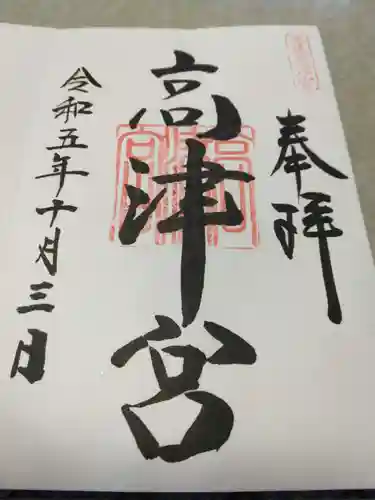 奉拝
高津宮
令和五年十月三日